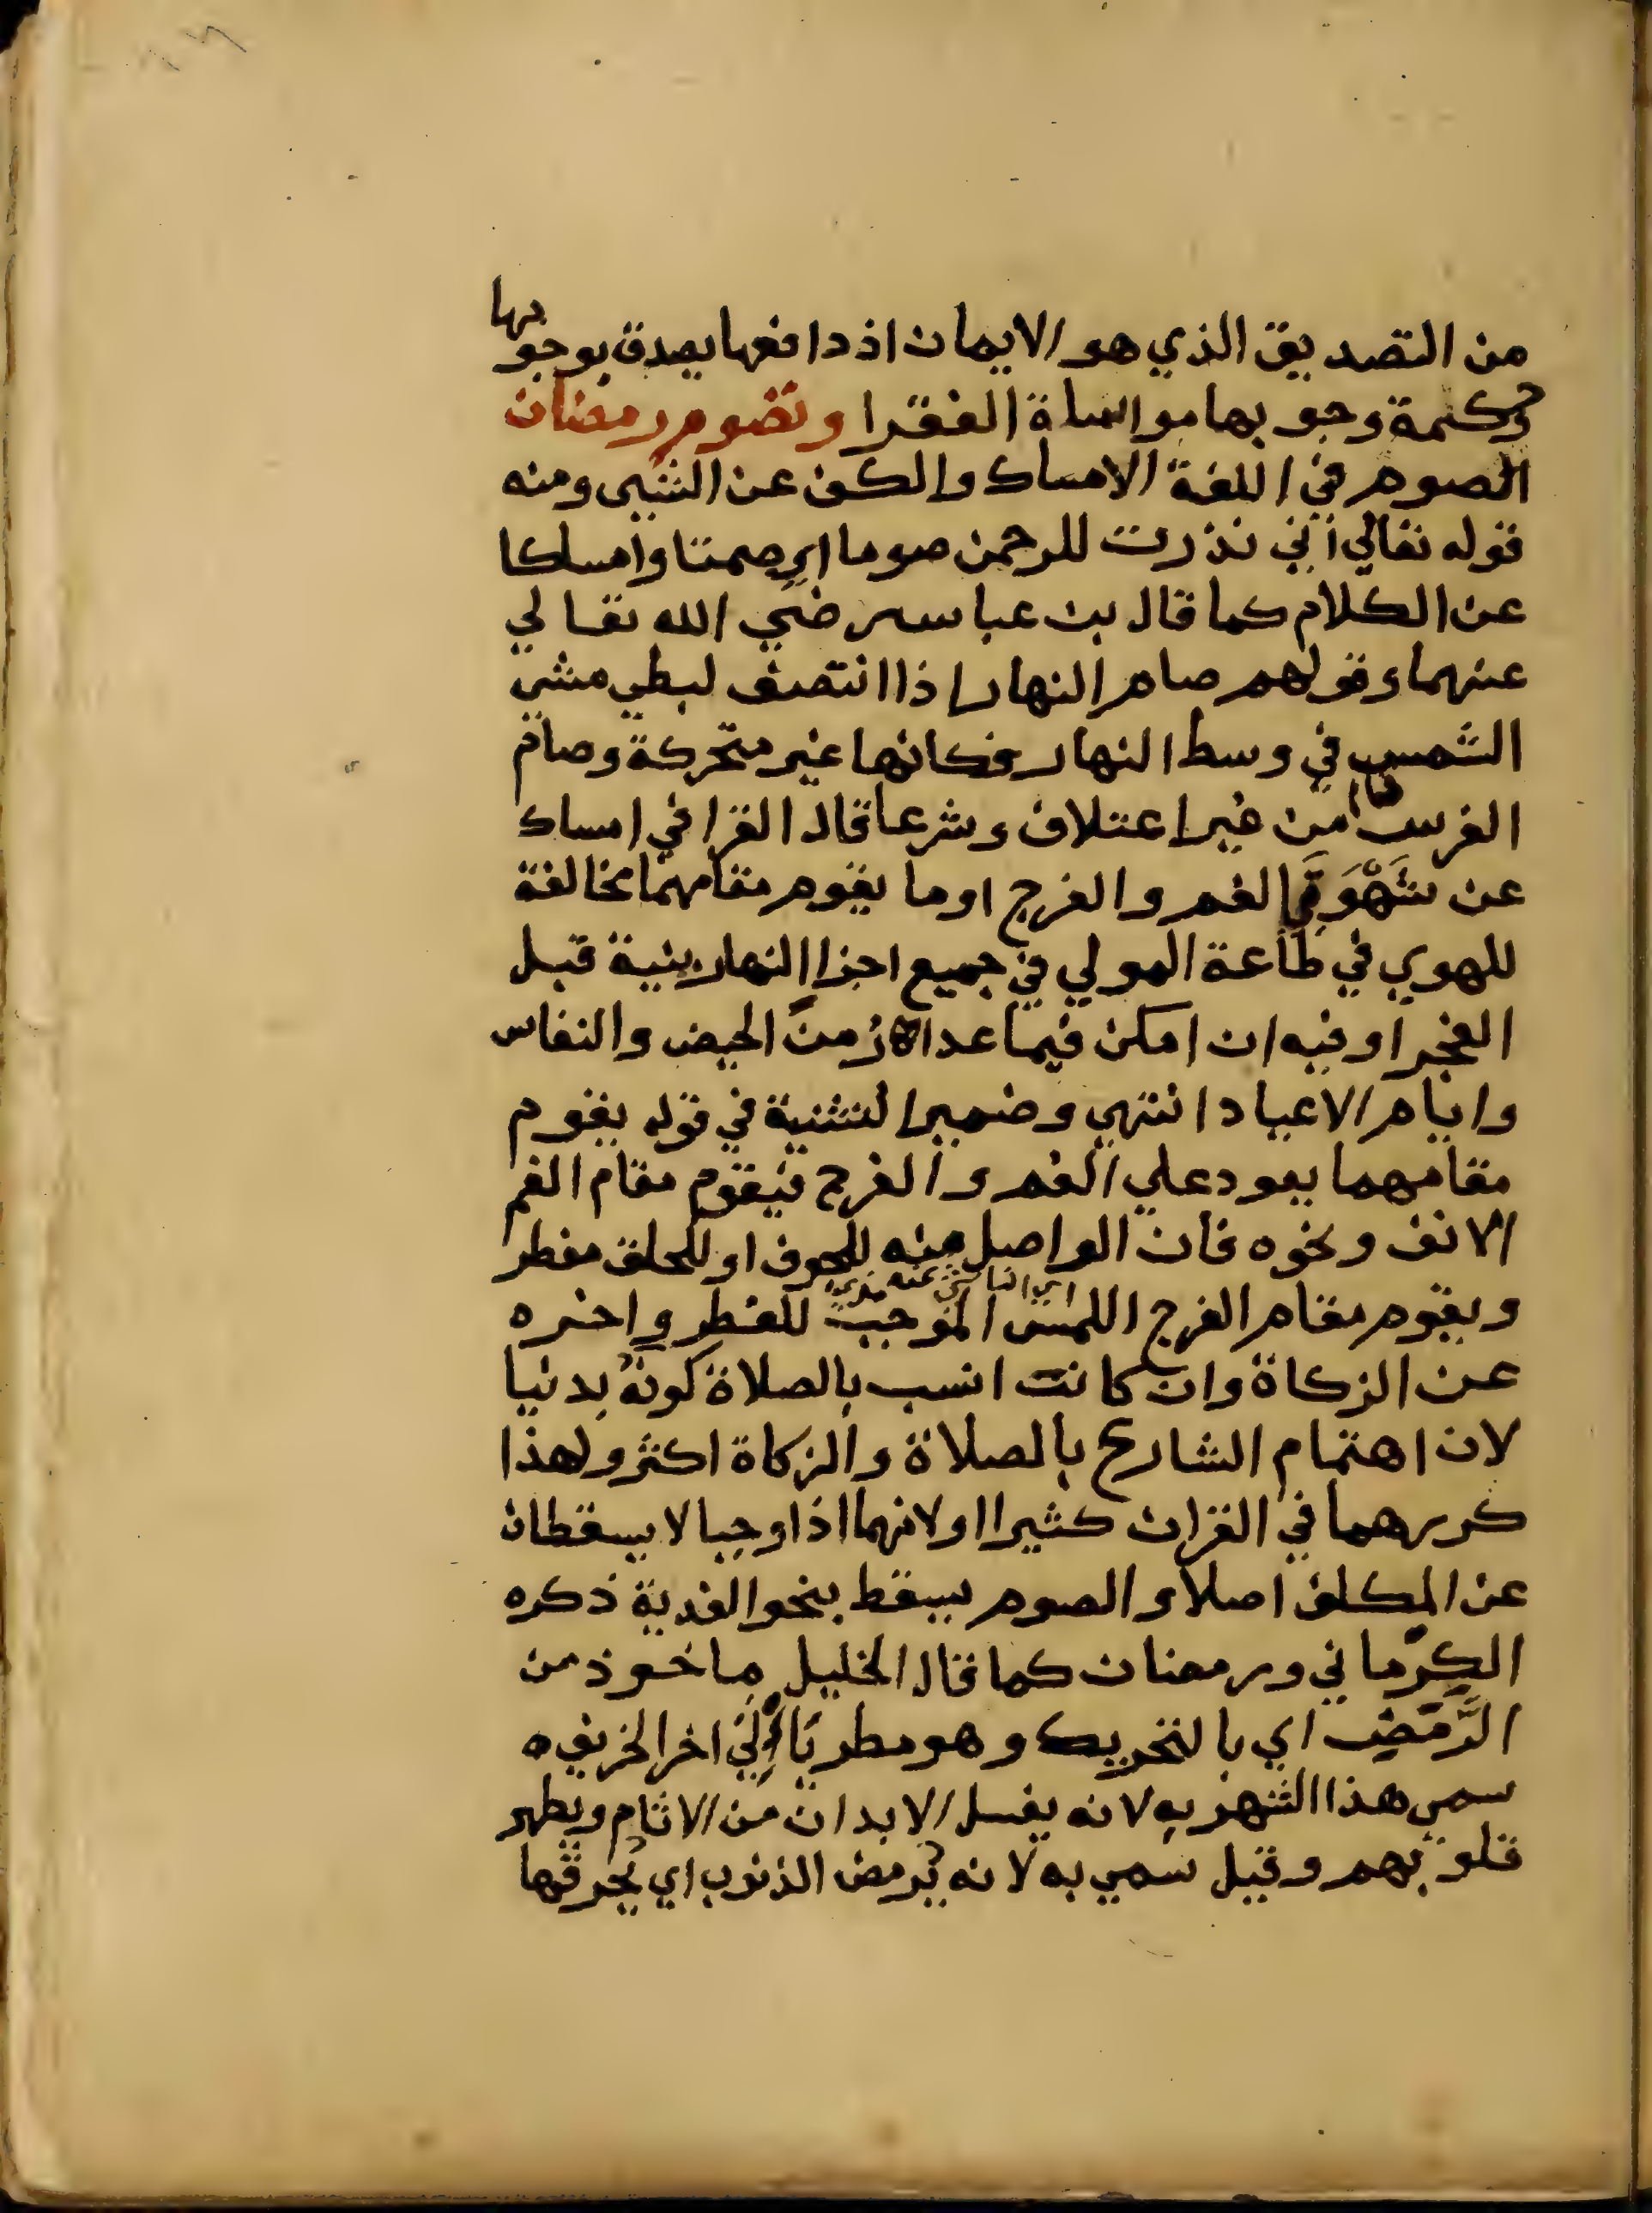 من التصديق الذي هو الايمان اذ دافعها يصدق بوجوبها
وحكمة وجوبها مواساة الفقرا وتصوم رمضان
الصوم في اللغة الامساك والكف عن الشيى ومنه
قوله تعالي اني نذرت للرحمن صوما اي صمتا وامساكا
عن الكلام كما قال بن عباس رضي الله تعالي
عنهما وقولهم صام النهار اذا انتصف لبطي مشي
الشمس في وسط النهار فكانها غير متحركة وصام
الفرس من غير اعتلاف وشرعا قال القرافي امساك
عن شَهْوَتَي الفم والفرج او ما يقوم مقامهما مخالفة
للهوي في طاعة المولي في جميع اجزا النهار بنية قبل
الفجر او فيه ان امكن فيما عدا زمن الحيض والنفاس
وايام الاعياد انتهي وضمير التثنية في قوله يقوم
مقامهما يعود علي الفم والفرج فيقوم مقام الفم
الانف ونحوه فان الواصل منه للجوف او للحلق مفطر
اي الناشي عنه مذي
ويقوم مقام الفرج اللمس الموجب للفطر واخره
عن الزكاة وان كانت انسب بالصلاة كونه بدنيا
لان اهتمام الشارع بالصلاة والزكاة اكثر ولهذا
كررهما في القران كثيرا او لانهما اذا وجبا لا يسقطان
عن المكلف اصلا والصوم يسقط بنحو الفدية ذكره
الكِرماني ورمضان كما قال الخليل ماخوذ من
الرَّمَضِ اي بالتحريك وهو مطر يَأتي اخر الخريف
سمي هذا الشهر به لانه يغسل الابدان من الاثام ويطهر
قلوبهم وقيل سمي به لانه يُرمض الذنوب اي يُحرقها